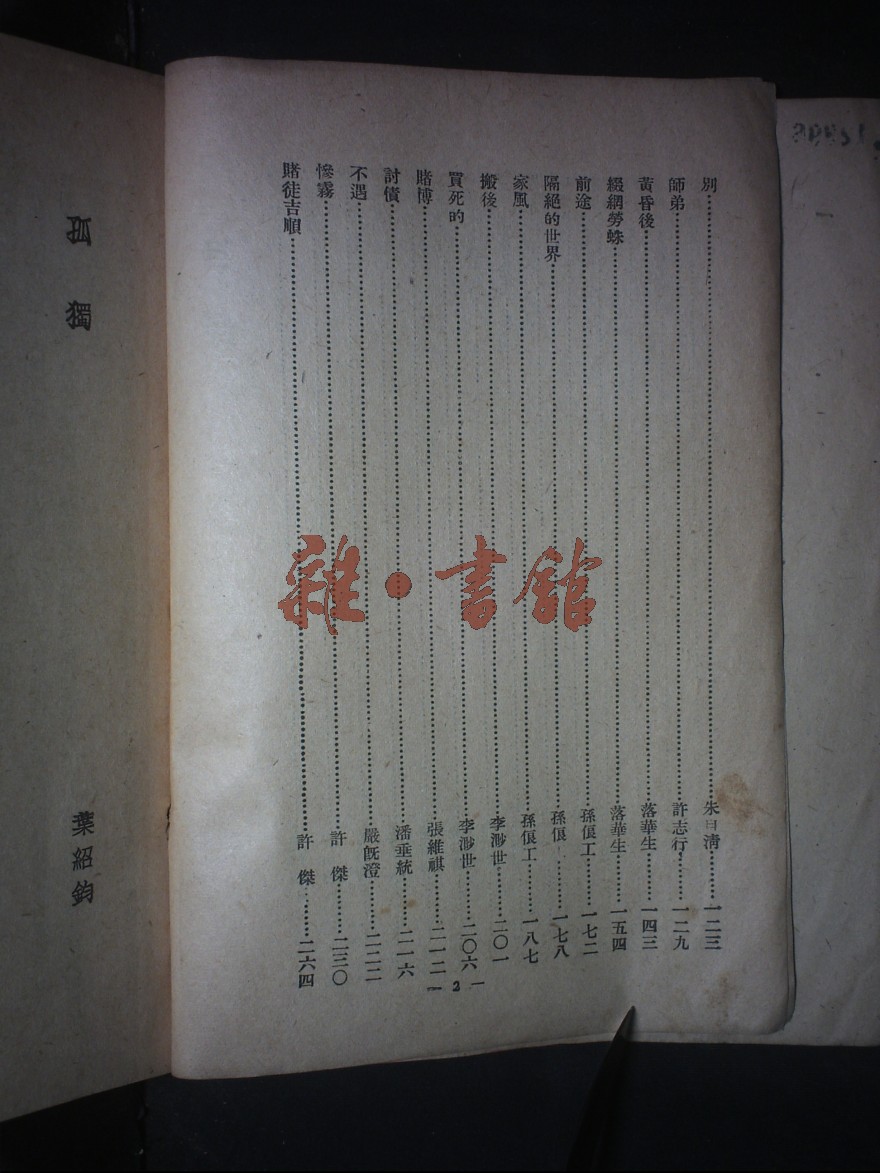 別……朱自淸……一二三
師弟……許志行……一二九
黃昏後……落華生……一四三
綴網勞蛛……落華生……一五四
前途……孫俍工……一七二
隔絕的世界……孫俍……一七八
家風……孫俍工……一八七
搬後……李渺世……二〇一
買死的……李渺世……二〇六
賭博……張維祺……二一二
討債……潘垂統……二一六
不遇……嚴旣澄……二二二
慘霧……許傑……二三〇
賭徒吉順……許傑……二六四
— 2 —
孤獨
葉紹鈞
雜·書館